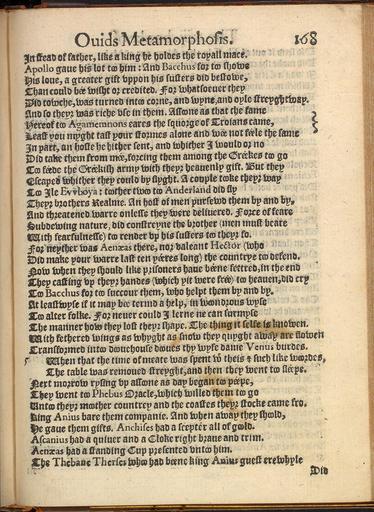 Ouids Metamorphosis. 168
In stead of father, like a king he holdes the royall mace.
Apollo gaue his lot to him: And Bacchus for to showe
His loue, a greater gift vppon his susters did bestowe,
Than could bée wisht or credited. For whatsoeuer they
Did towche, was turned into corne, and wyne, and oyle streyghtway.
And so theyr was riche vse in them. Assone as that the fame
Hereof to Agamemnons eares the squorge of Troians came,
Least you myght tast your stormes alone and wée not féele the same
In part, an hoste he hither sent, and whither I would or no
Did take them from mée, forcing them among the Gréekes to go
To féede the Gréekish army with theyr heauenly gift. But they
Escaped whither they could by flyght. A couple toke theyr way
To Ile Evvboya: tother two to Anderland did fly
Theyr brothers Realme. An host of men pursewd them by and by,
And threatened warre onlesse they were deliuered. Force of feare
Subdewing nature, did constreyne the brother (men must beare
With fearfulnesse) to render vp his susters to theyr fo.
For neyther was Aenæas there, nor valeant Hector (who
Did make your warre last ten yéeres long) the countrye to defend.
Now when they should like prisoners haue béene fettred, in the end
They casting vp theyr handes (which yit were frée) to heauen, did cry
To Bacchus for to succour them, who helpt them by and by.
At leastwyse if it may bée termd a help, in wondrous wyse
To alter folke. For neuer could I lerne ne can surmyse
The manner how they lost theyr shape. The thing it selfe is knowen.
With fethered wings as whyght as snow they quyght away are flowen
Transformed into doouehouse dooues thy wyfe dame Venus burdes.
When that the time of meate was spent wᵗ theis & such like woordes,
The table was remoued streyght, and then they went to sléepe.
Next morrow rysing vp assone as day began to péepe,
They went to Phebus Oracle, which willed them to go
Untoo theyr moother countrey and the coastes theyr stocke came fro.
King Anius bare them companie. And when away they shoold,
He gaue them gifts. Anchises had a scepter all of goold.
Ascanius had a quiuer and a Cloke right braue and trim.
Aenæas had a standing Cup presented vnto him.
The Thebane Therses whoo had béene king Anius guest erewhyle
Did